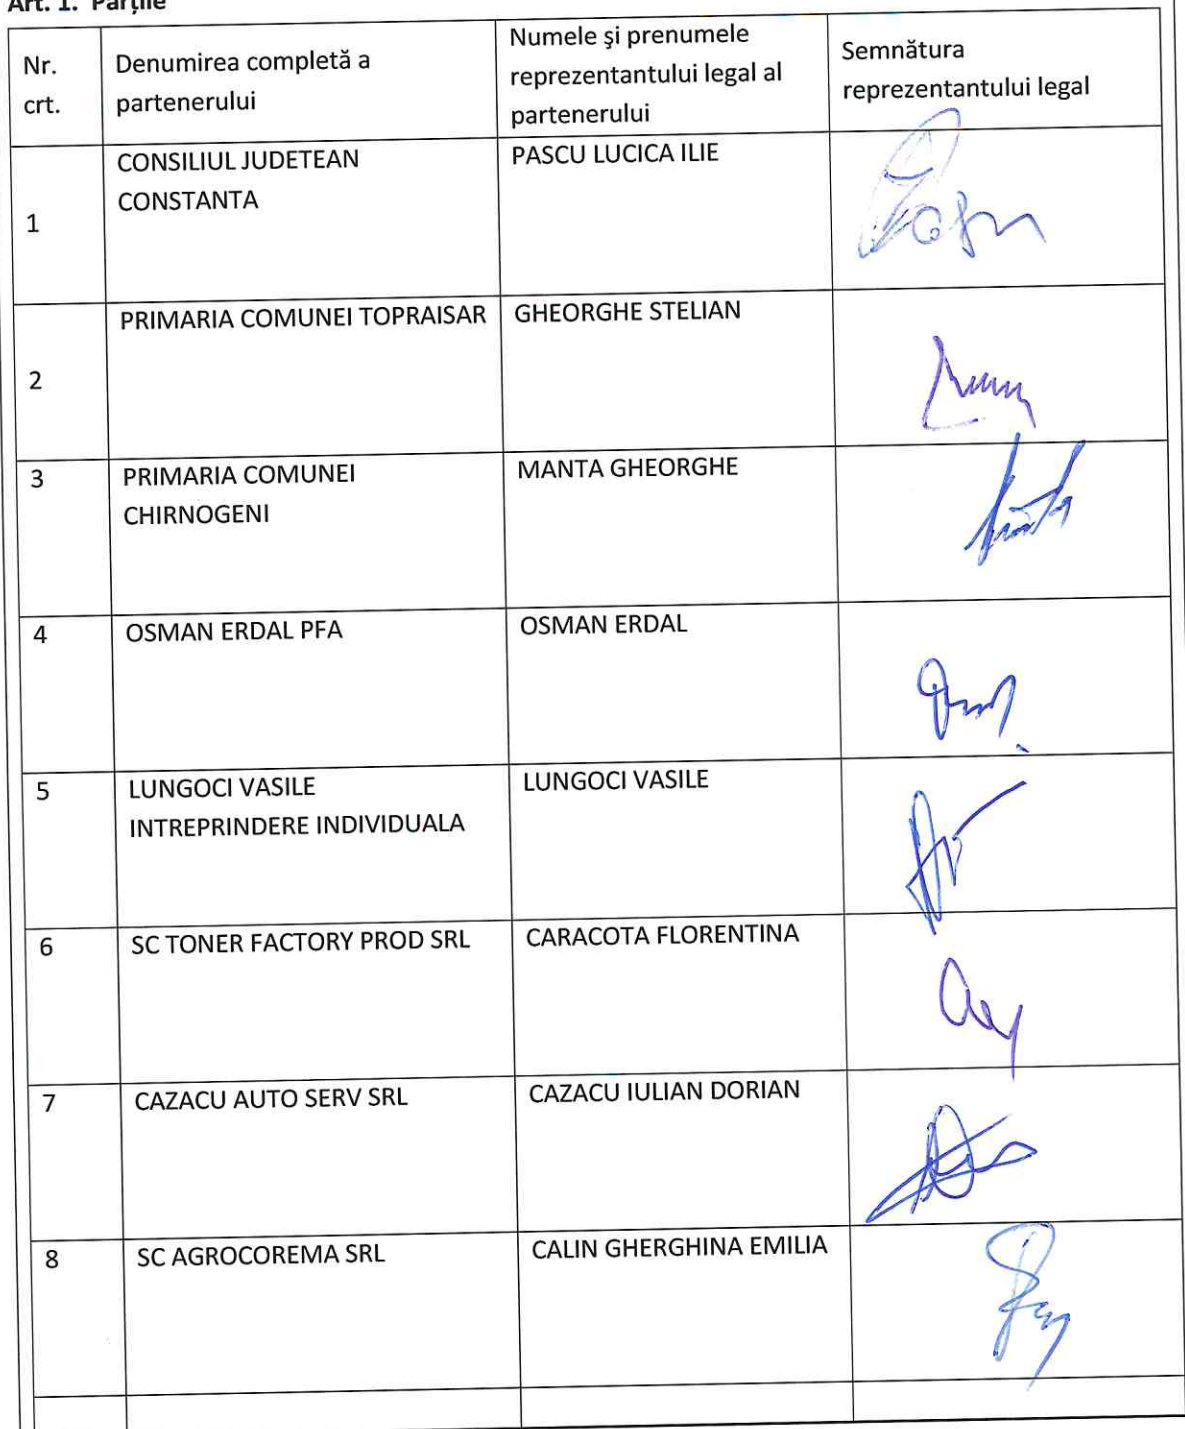 Art. 1. Părțile
Nr.
crt.
Denumirea completă a
partenerului
Numele și prenumele
reprezentantului legal al
partenerului
Semnătura
reprezentantului legal
1
CONSILIUL JUDETEAN
CONSTANTA
PASCU LUCICA ILIE
2
PRIMARIA COMUNEI TOPRAISAR
GHEORGHE STELIAN
3
PRIMARIA COMUNEI
CHIRNOGENI
MANTA GHEORGHE
4
OSMAN ERDAL PFA
OSMAN ERDAL
5
LUNGOCI VASILE
INTREPRINDERE INDIVIDUALA
LUNGOCI VASILE
6
SC TONER FACTORY PROD SRL
CARACOTA FLORENTINA
7
CAZACU AUTO SERV SRL
CAZACU IULIAN DORIAN
8
SC AGROCOREMA SRL
CALIN GHERGHINA EMILIA